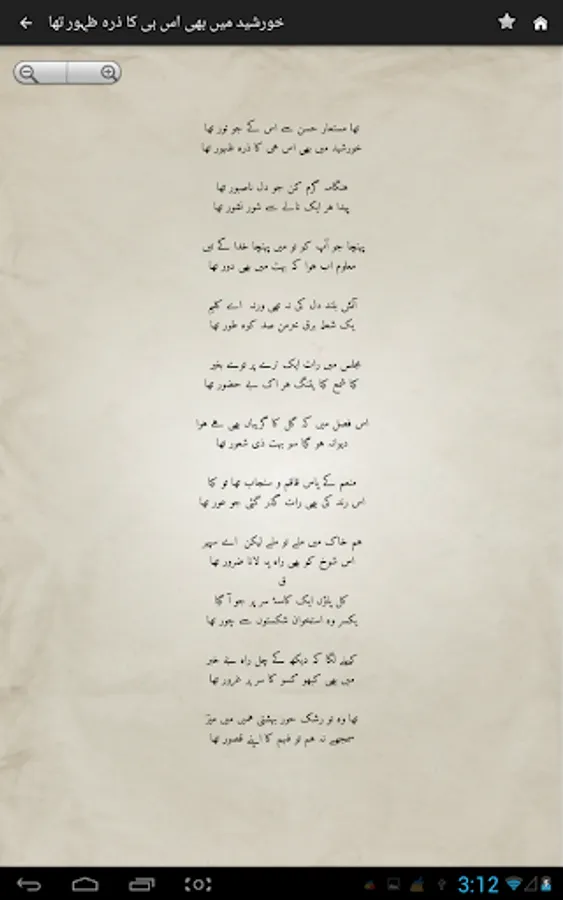 خورشید میں بھی اس ہی کا ذرہ ظہور تھا
تھا مستعار حسن سے اس کے جو نور تھا
خورشید میں بھی اس ہی کا ذرہ ظہور تھا
ہنگامہ گرم کن جو دل ناصبور تھا
پیدا ہر ایک نالے سے شور نشور تھا
پہنچا جو آپ کو تو میں پہنچا خدا کے تیں
معلوم اب ہوا کہ بہت میں بھی دور تھا
آتش بلند دل کی نہ تھی ورنہ اے کلیم
یک شعلہ برق خرمن صد کوہ طور تھا
مجلس میں رات ایک ترے پرتوے بغیر
کیا شمع کیا پتنگ ہر اک بے حضور تھا
اس فصل میں کہ گل کا گریباں بھی ہے ہوا
دیوانہ ہو گیا سو بہت ذی شعور تھا
منعم کے پاس قاقم و سنجاب تھا تو کیا
اس رند کی بھی رات گذر گئی جو عور تھا
ہم خاک میں ملے تو ملے لیکن اے سپہر
اس شوخ کو بھی راہ پہ لانا ضرور تھا
ق
کل پاؤں ایک کاسۂ سر پر جو آ گیا
یکسر وہ استخوان شکستوں سے چور تھا
کہنے لگا کہ دیکھ کے چل راہ بے خبر
میں بھی کبھو کسو کا سر پر غرور تھا
تھا وہ تو رشک حور بہشتی ہمیں میں میرؔ
سمجھے نہ ہم تو فہم کا اپنے قصور تھا
3:12